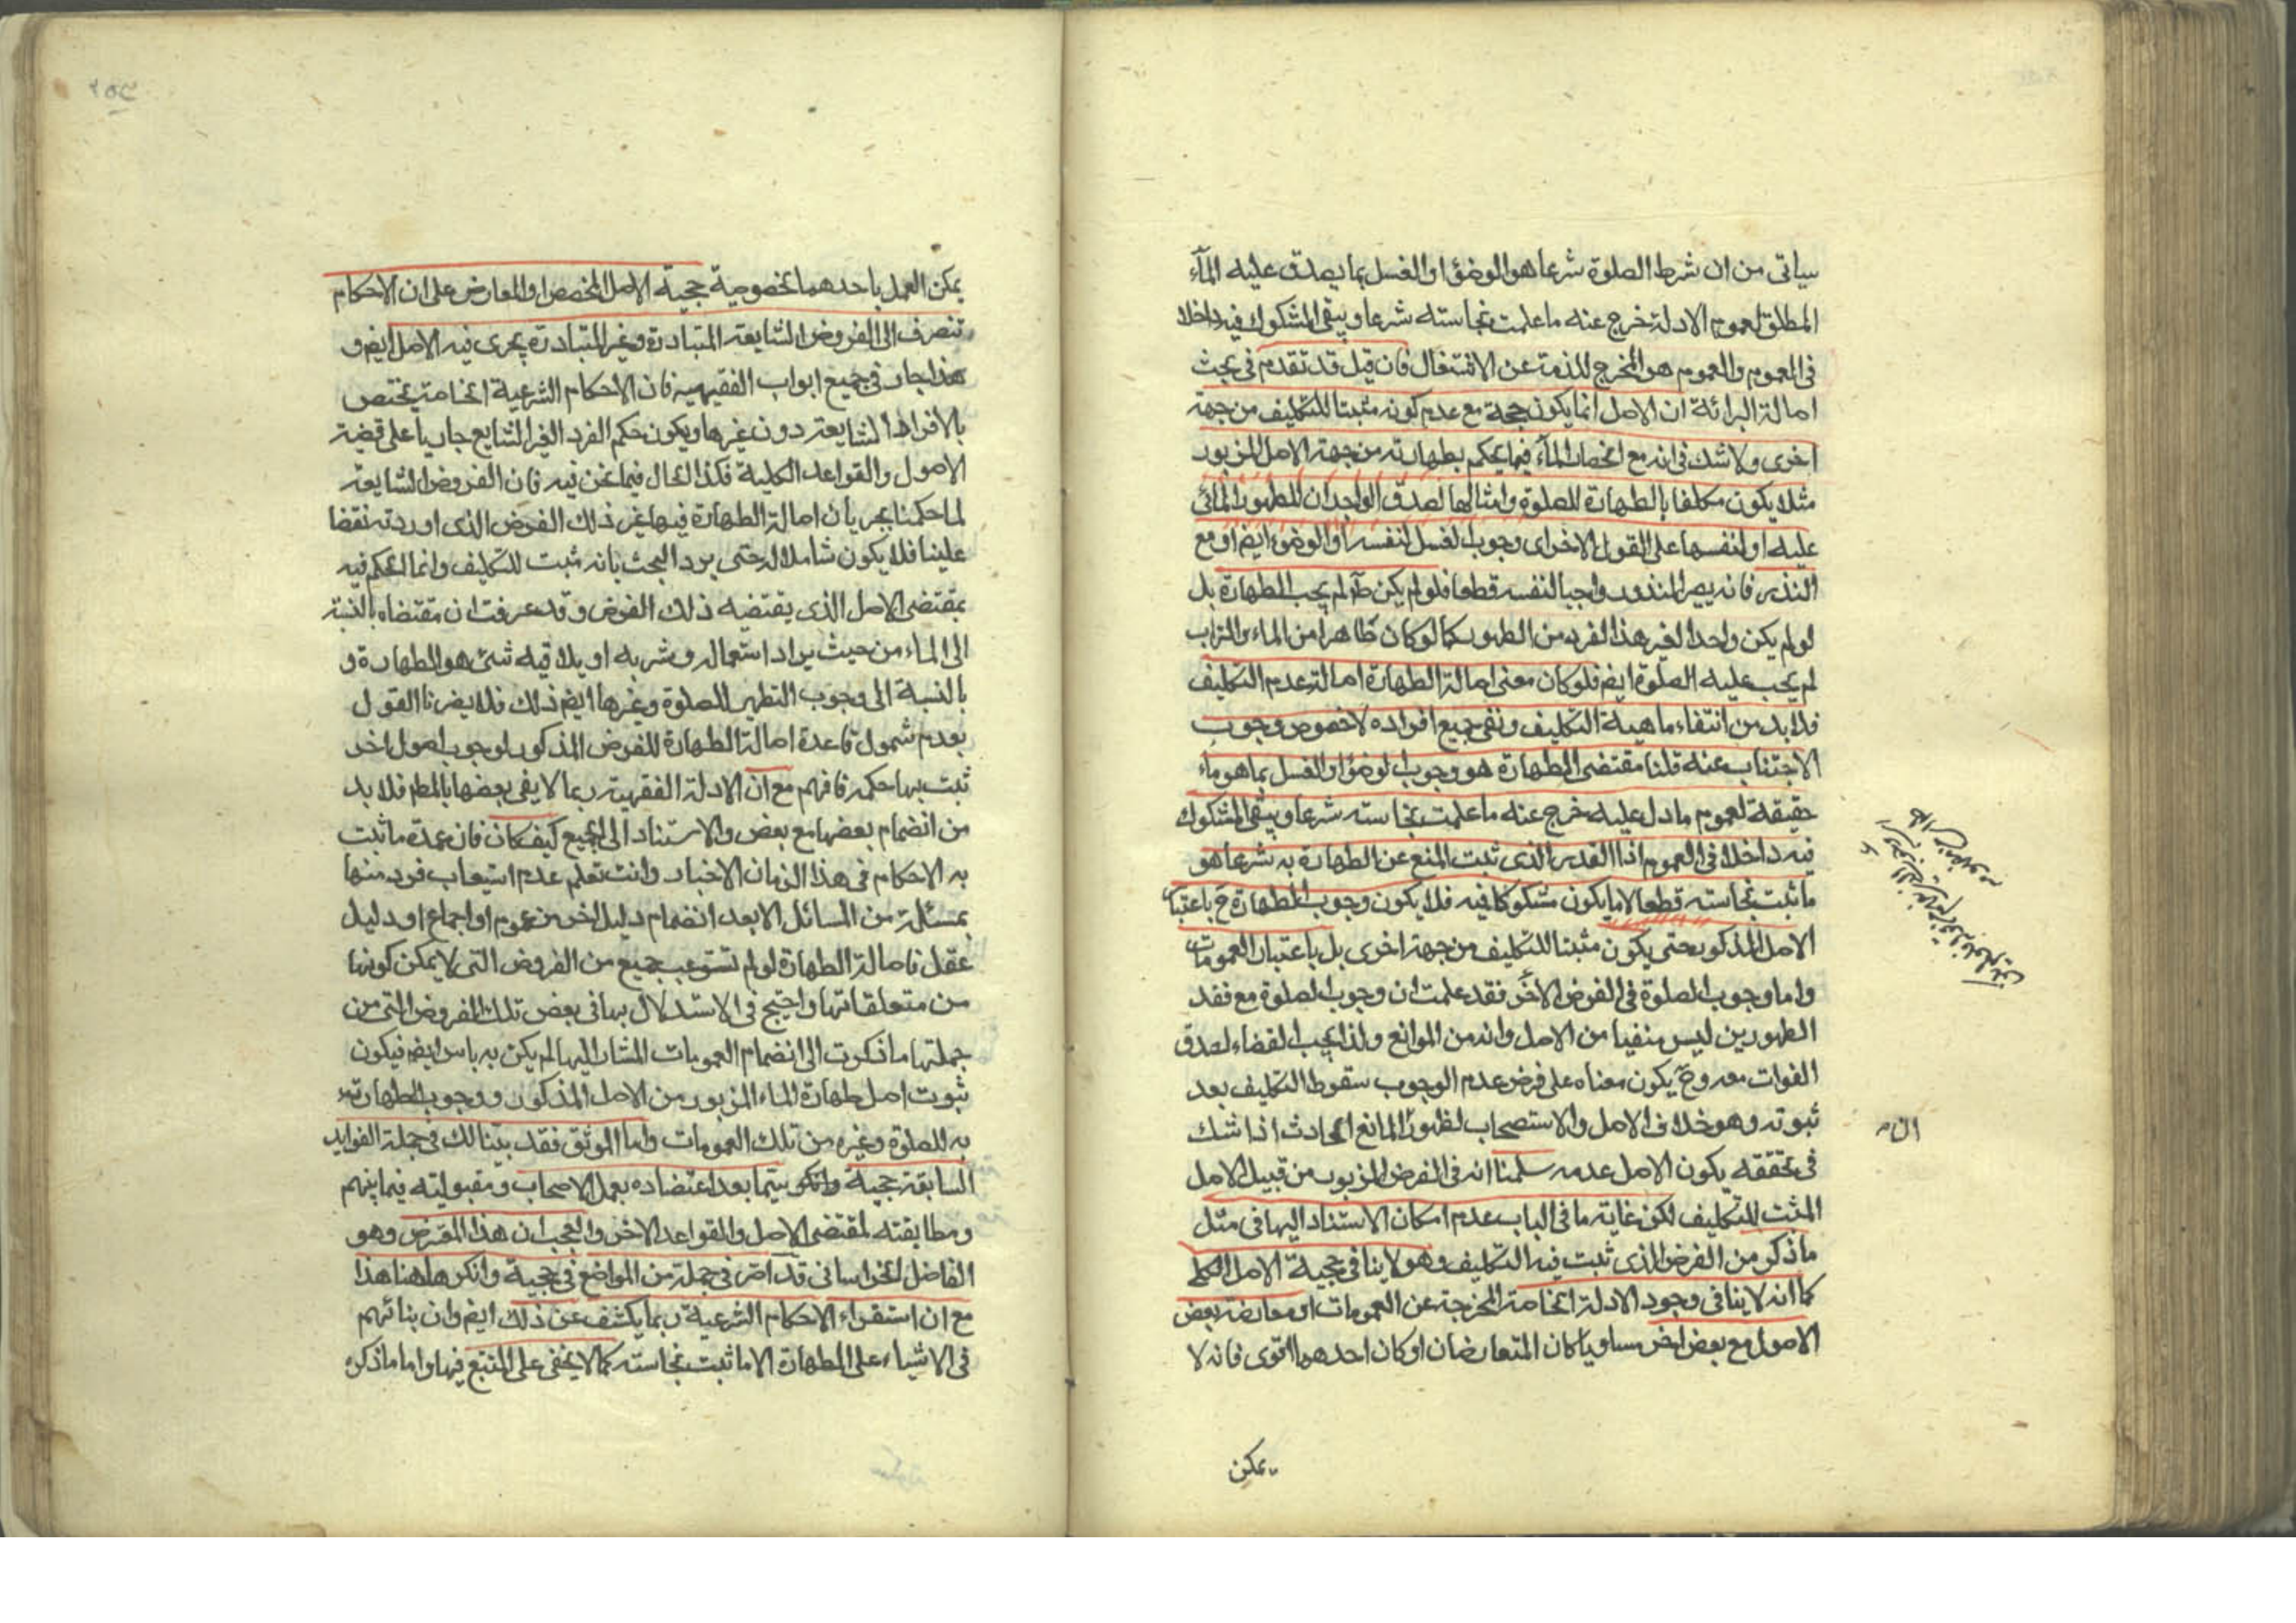 سياتى من ان شرط الصلوة شرعا هو الوضؤ او الغسل بما يصدق عليه المآء
المطلق لعموم الادلة خرج عنه ما علمت نجاسته شرعا ويبقى المشكوك فيه داخلا
فى العموم والعموم هو المخرج للذمة عن الاشتغال فان قيل قد تقدم فى بحث
اصالة البرائة ان الاصل انما يكون حجة مع عدم كونه مثبتا للتكليف من جهة
اخرى ولا شك فى انه مع انحصار المآء فيما يحكم بطهارته من جهة الاصل المزبور
مثلا يكون مكلفا بالطهارة للصلوة وامثالها لصدق الواجدان للطهور المائى
عليه او لنفسها على القول الاخر اى وجوب الغسل لنفسه او الوضوء ايضا او مع
النذر فانه يصير المنذور واجبا لنفسه قطعا فلو لم يكن طآ لم يجب الطهارة بل
لو لم يكن واجدا لغير هذا الفرد من الطهور كما لو كان ظاهرا من الماء والتراب
لم يجب عليه الصلوة ايضا فلو كان معنى اصالة الطهارة اصالة عدم التكليف
فلا بد من انتفاء ماهية التكليف ونفى جميع افراده لا خصوص وجوب
الاجتناب عنه قلنا مقتضى الطهارة هو وجوب الوضؤ او الغسل بما هو ماء
حقيقة لعموم ما دل عليه خرج عنه ما علمت نجاسته شرعا ويبقى المشكوك
فيه داخلا فى العموم اذا القدر الذى ثبت المنع عن الطهارة به شرعا هو
ما ثبت نجاسته قطعا لا ما يكون مشكوكا فيه فلا يكون وجوب الطهارة ح باعتبار
الاصل المذكور حتى يكون مثبتا للتكليف من جهة اخرى بل باعتبار العمومات
واما وجوب الصلوة فى الفرض الاخر فقد علمت ان وجوب الصلوة مع فقد
الطهورين ليس منفيا من الاصل وانه من الموانع ولذا يجب القضاء لصدق
الفوات معه وح يكون معناه على فرض عدم الوجوب سقوط التكليف بعد
ثبوته وهو خلاف الاصل والاستصحاب لظهور المانع الحادث اذا شك
فى تحققه يكون الاصل عدمه سلمنا انه فى الفرض المزبور من قبيل الاصل
المثبت للتكليف لكن غاية ما فى الباب عدم امكان الاستناد اليها فى مثل
ما ذكر من الفرض الذى ثبت فيه التكليف وهو لا ينافى حجية الاصل الكلى
كما انه لا ينافى وجود الادلة الخاصة المخرجة عن العمومات او معارضة بعض
الاصول مع بعض اخر مساويا كان المتعارضان او كان احدهما اقوى فانه لا
يمكن
يمكن العمل باحدهما بخصوصية حجية الاصل المخصص او المعارض على ان الاحكام
تنصرف الى الفروض الشايعة المتبادرة وغير المتبادرة يجرى فيه الاصل ايضا و
هذا جار فى جميع ابواب الفقيهية فان الاحكام الشرعية الخاصة يختص
بالافراد الشايعة دون غيرها ويكون حكم الفرد الغير الشايع جاريا على قضية
الاصول والقواعد الكلية فكذا الحال فيما نحن فيه فان الفروض الشايعة
لما حكمنا بجريان اصالة الطهارة فيها غير ذلك الفرض الذى اوردته نقضا
علينا فلا يكون شاملا له حتى يرد البحث بانه مثبت للتكليف وانما الحكم فيه
بمقتضى الاصل الذى يقتضيه ذلك الفرض وقد عرفت ان مقتضاه بالنسبة
الى الماء من حيث يراد استعماله وشربه او يلاقيه شئ هو الطهارة و
بالنسبة الى وجوب التطهير للصلوة وغيرها ايضا ذلك فلا يضرنا القول
بعدم شمول قاعدة اصالة الطهارة للفرض المذكور لوجوب اصول اخر
ثبت بها حكمه فافهم مع ان الادلة الفقهية ربما لا يفى بعضها بالمطم فلا بد
من انضمام بعضها مع بعض والاستناد الى الجميع كيف كان فان عمدة ما ثبت
به الاحكام فى هذا الزمان الاخبار وانت تعلم عدم استيعاب فرد منها
بمسئلة من المسائل الا بعد انضمام دليل اخر من عموم او اجماع او دليل
عقل فاصالة الطهارة لو لم تستوعب جميع من الفروض التى لا يمكن كونها
من متعلقاتها واحتيج فى الاستدلال بها فى بعض تلك الفروض التى من
جملتها ما ذكرت الى انضمام العمومات المشار اليها لم يكن به باس ايضا فيكون
ثبوت اصل طهارة الماء المزبور من الاصل المذكور ووجوب الطهارة
به للصلوة وغيره من تلك العمومات واما الموثق فقد بينا لك فى جملة الفوايد
السابقة حجية سيما بعد اعتضاده بعمل الاصحاب ومقبوليته فيما بينهم
ومطابقته لمقتضى الاصل والقواعد الاخر والعجب ان هذا المعترض وهو
الفاضل الخراسانى قد اصر فى جملة من المواضع فى حجية وانكرها هنا هذا
مع ان استقراء الاحكام الشرعية ربما يكشف عن ذلك ايضا وان بنائهم
فى الاشياء على الطهارة الا ما ثبت نجاسته كما لا يخفى على المتتبع فيها واما ما ذكره